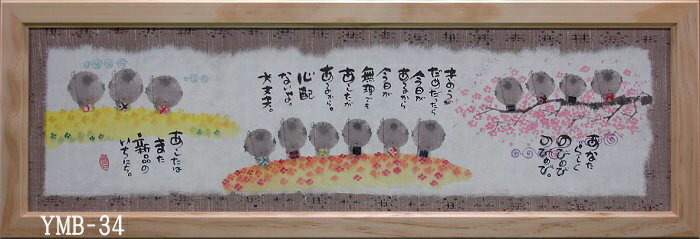 あなた
らしく
のびのび
のびのび。
きのうが
だめだったら
今日が
あるから
今日が
無理でも
あしたが
あるから。
心配
ないよ。
大丈夫。
あしたは
また
新品の
いちにち。
YMB-34